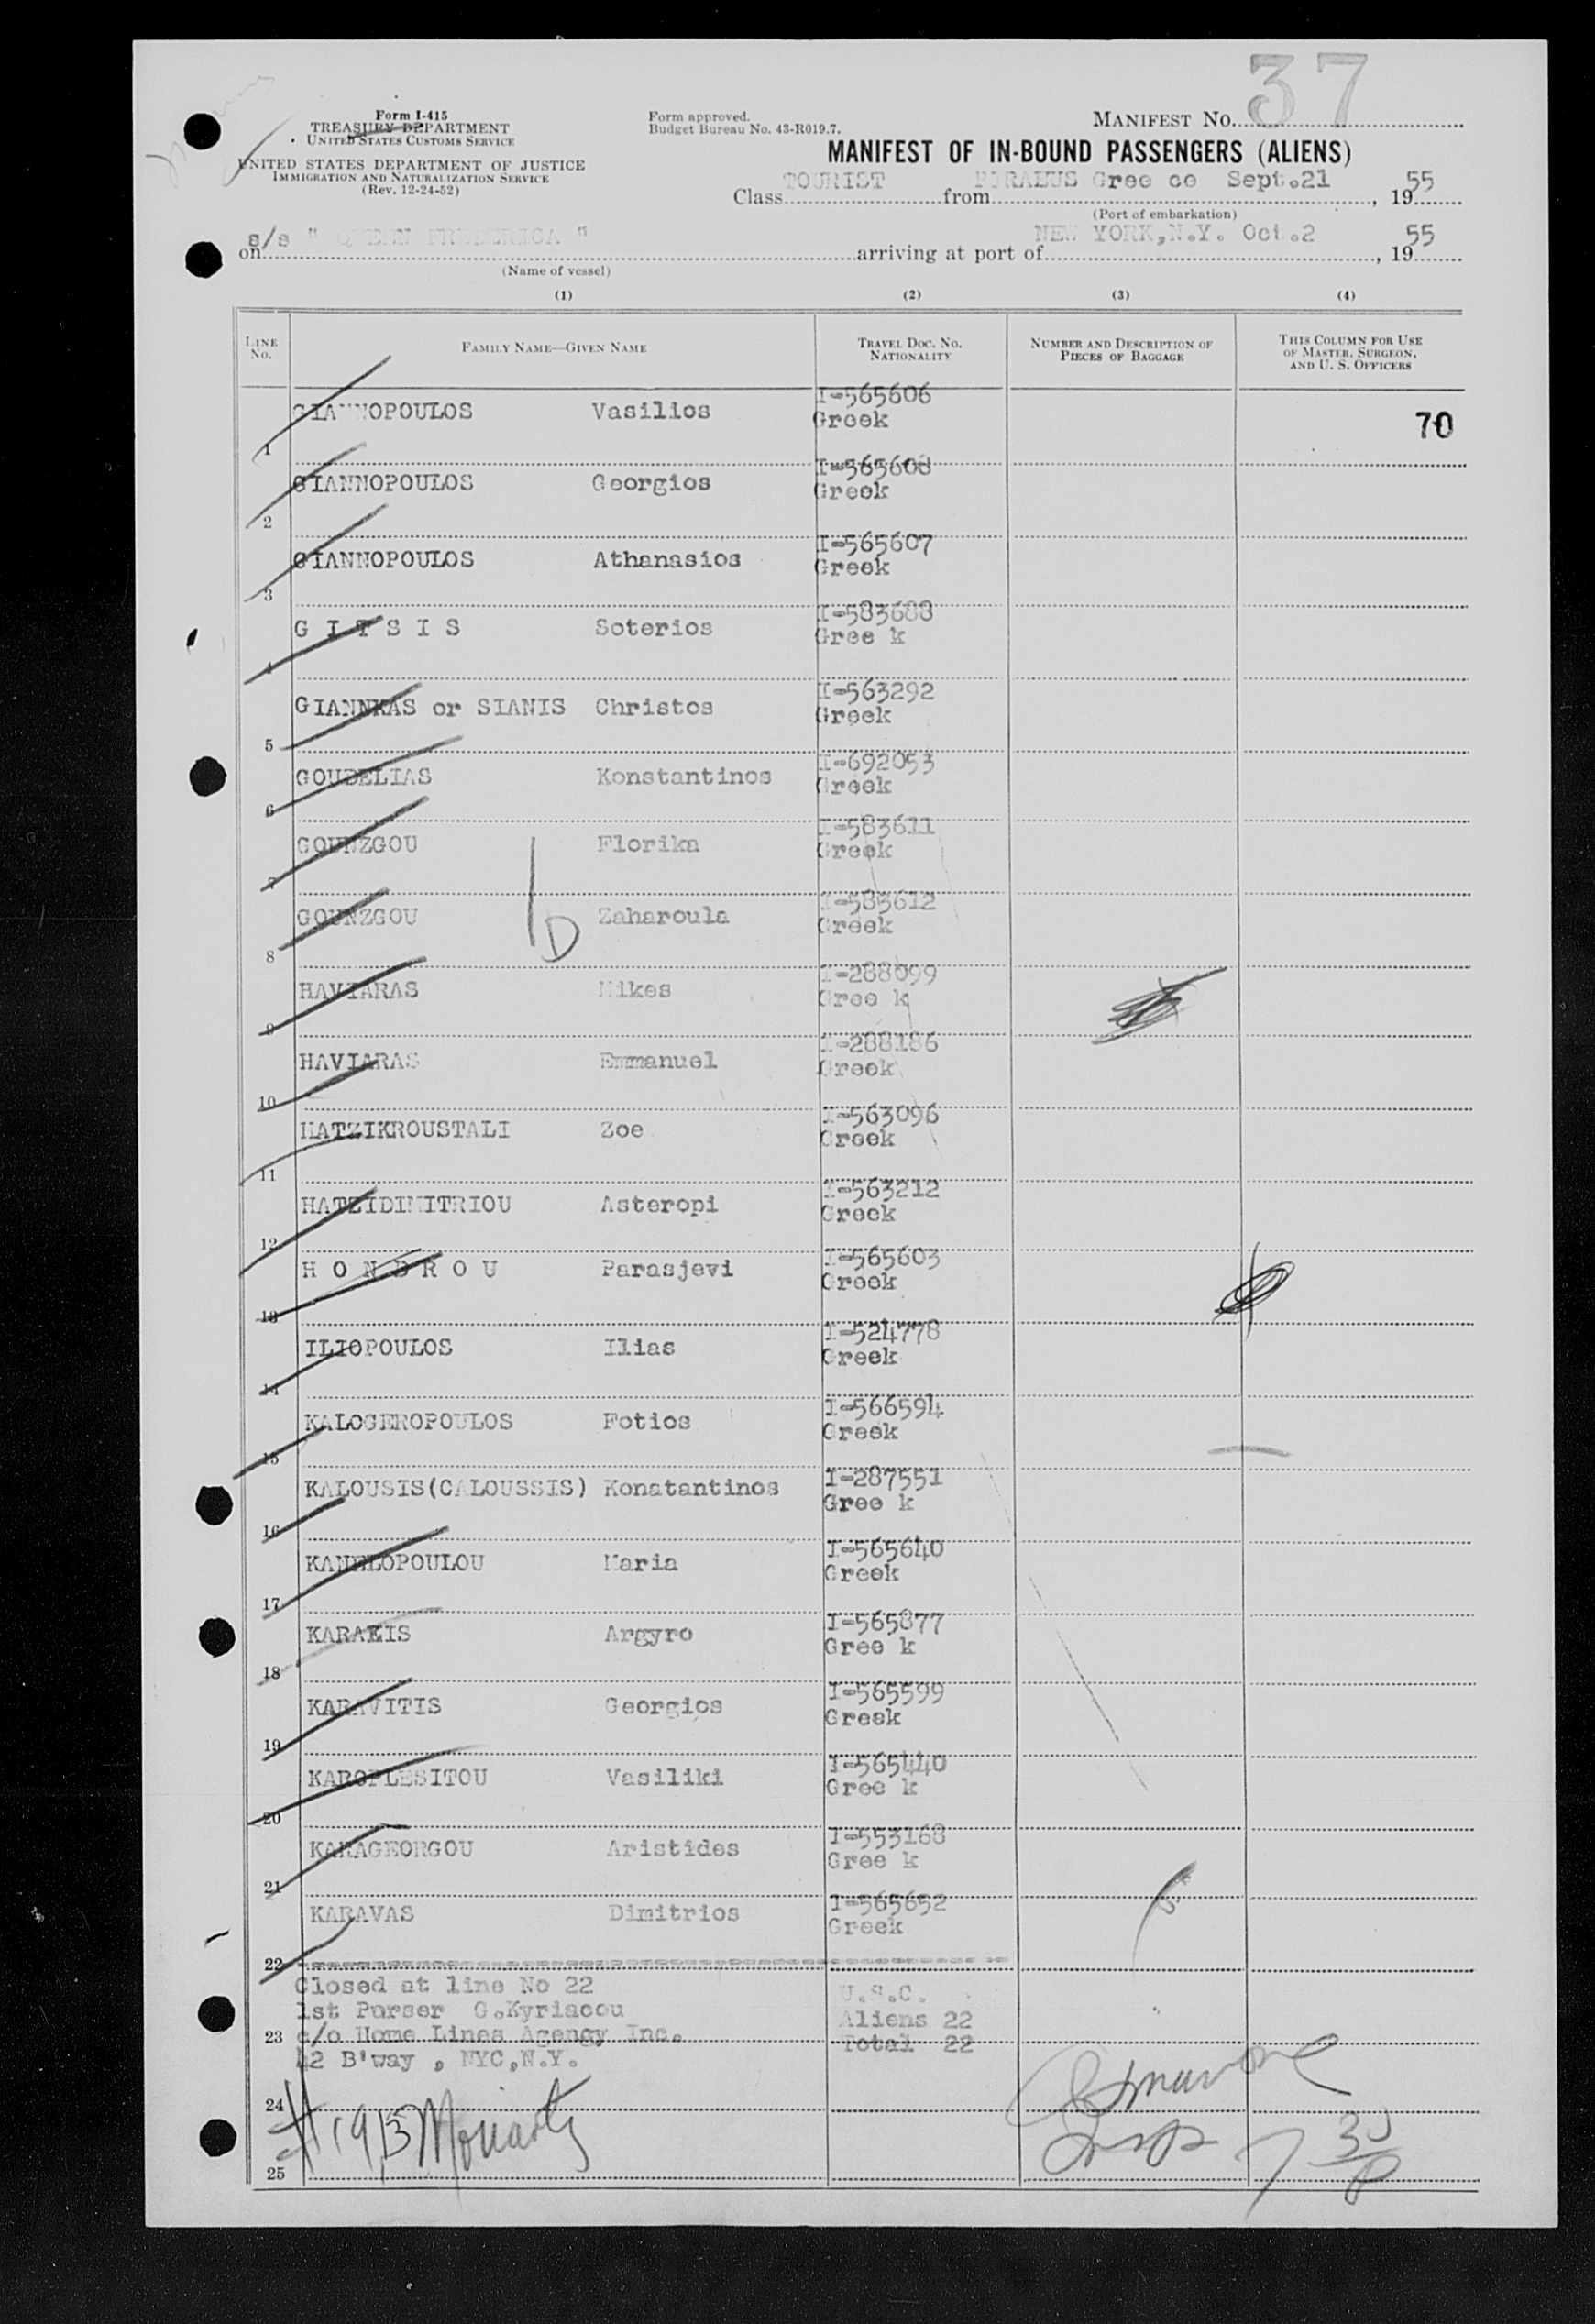 37
Form I-415
TREASURY DEPARTMENT
UNITED STATES CUSTOMS SERVICE
UNITED STATES DEPARTMENT OF JUSTICE
IMMIGRATION AND NATURALIZATION SERVICE
(Rev. 12-24-52)
Form approved.
Budget Bureau No. 43-R019.7.
MANIFEST NO.
MANIFEST OF IN-BOUND PASSENGERS (ALIENS)
Class TOURIST from PIRAEUS Gree ce Sept.21, 1955
(Port of embarkation)
on s/s " QUEEN FREDERICA " arriving at port of NEW YORK,N.Y. Oct.2, 1955
(Name of vessel)
(1) (2) (3) (4)
LINE NO. FAMILY NAME—GIVEN NAME TRAVEL DOC. NO. NATIONALITY NUMBER AND DESCRIPTION OF PIECES OF BAGGAGE THIS COLUMN FOR USE OF MASTER, SURGEON, AND U. S. OFFICERS
1 GIANNOPOULOS Vasilios I-565606 Greek 70
2 GIANNOPOULOS Georgios I-565608 Greek
3 GIANNOPOULOS Athanasios I-565607 Greek
4 G I T S I S Soterios I-583688 Gree k
5 GIANNKAS or SIANIS Christos I-563292 Greek
6 GOUDELIAS Konstantinos I-692053 Greek
7 GOUNZGOU Florika I-583611 Greek
8 GOUNZGOU Zaharoula I-583612 Greek
D
9 HAVIARAS Mikes I-288099 Gree k
10 HAVIARAS Emmanuel I-288186 Greek
11 HATZIKROUSTALI Zoe I-563096 Greek
12 HATZIDIMITRIOU Asteropi I-563212 Greek
13 H O N D R O U Parasjevi I-565603 Greek
14 ILIOPOULOS Ilias I-524778 Greek
15 KALOGEROPOULOS Fotios I-566594 Greek
16 KALOUSIS(CALOUSSIS) Konatantinos I-287551 Gree k
17 KANELOPOULOU Maria I-565640 Greek
18 KARAKIS Argyro I-565877 Gree k
19 KARAVITIS Georgios I-565599 Greek
20 KAROPLESITOU Vasiliki I-565440 Gree k
21 KARAGEORGOU Aristides I-553168 Gree k
22 KARAVAS Dimitrios I-565652 Greek
Closed at line No 22 U.S.C.
1st Purser G.Kyriacou Aliens 22
23 c/o Home Lines Agency Inc. Total 22
42 B'way , NYC,N.Y.
24
# 1913 Moriarty
25
Insp 7 30